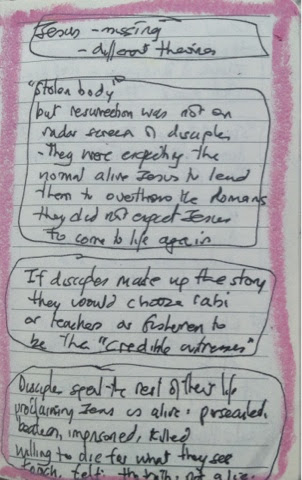 Jesus - missing
- different theories
"stolen body"
but resurrection was not on
radar screen of disciples
- they were expecting the
normal alive Jesus to lead
them to overthrow the Romans
they did not expect Jesus
to come to life again
If disciples made up the story
they would choose rabi
or teachers or fishermen to
be the "credible witnesses"
Disciples spend the rest of their life
proclaiming Jesus is alive: persecuted,
beaten, imprisoned, killed
willing to die for what they see
touch, felt: the truth: not a lie: